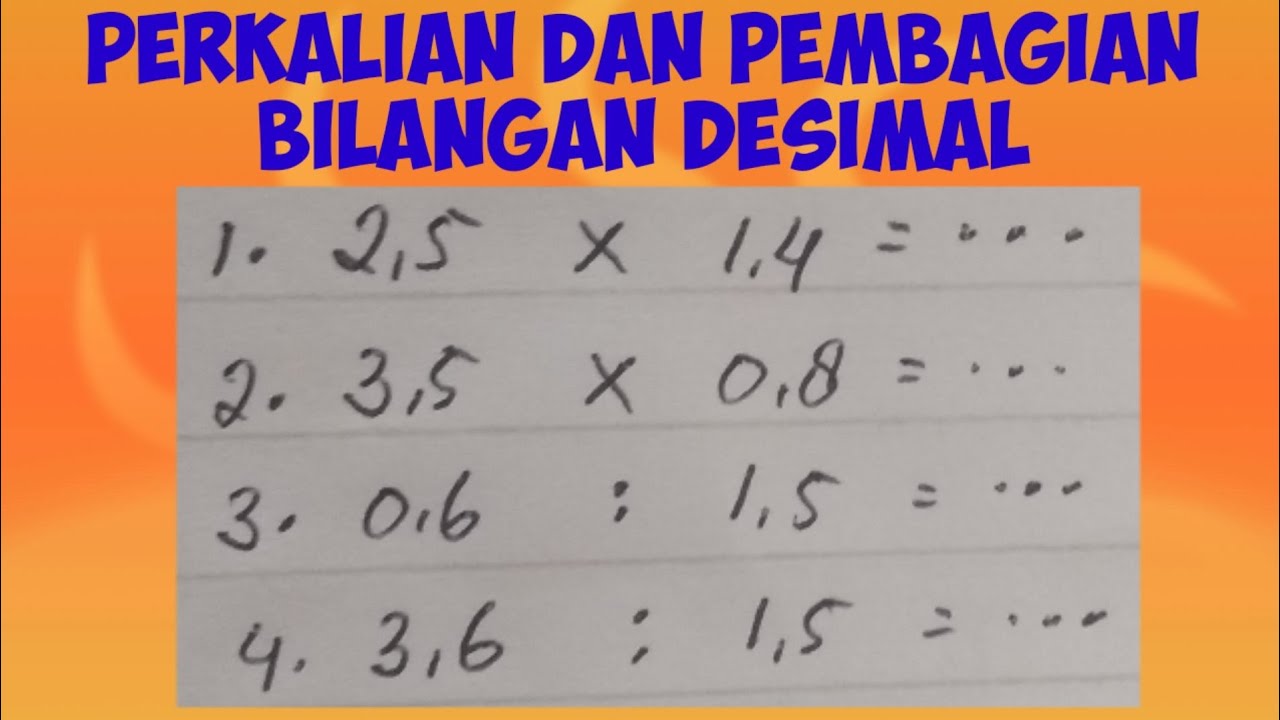 PERKALIAN DAN PEMBAGIAN
BILANGAN DESIMAL
1. 2,5 x 1,4 = ...
2. 3,5 x 0,8 = ...
3. 0,6 : 1,5 = ...
4. 3,6 : 1,5 = ...